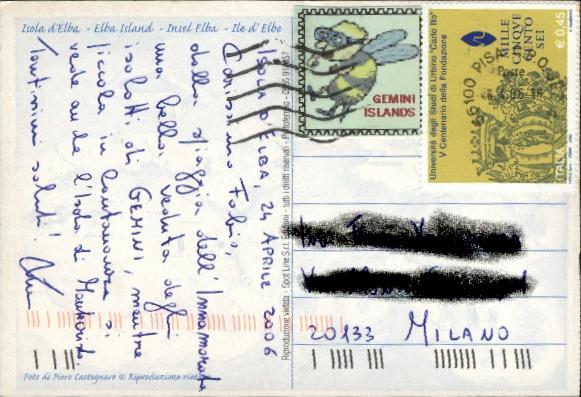 Isola d'Elba - Elba Island - Insel Elba - Ile d'Elbe
ISOLA D'ELBA, 24 APRILE 2006
Carissimo Fabio,
dalla spiaggia dell'Innamorata
una bella veduta degli
isolotti di GEMINI, mentre
piccola in lontananza si
vede anche l'Isola di Montecristo.
Tantissimi saluti!
Foto di Piero Castegnaro © Riproduzione
Riproduzione vietata - Spot Line S.r.l. - tutti i diritti riservati - Portoferraio
GEMINI
ISLANDS
Università degli Studi di Urbino "Carlo Bo"
V Centenario della Fondazione
MILLE
CINQUE
CENTO
SEI
€ 0,45
ITALIA
56100 PISA
Poste
20133 MILANO